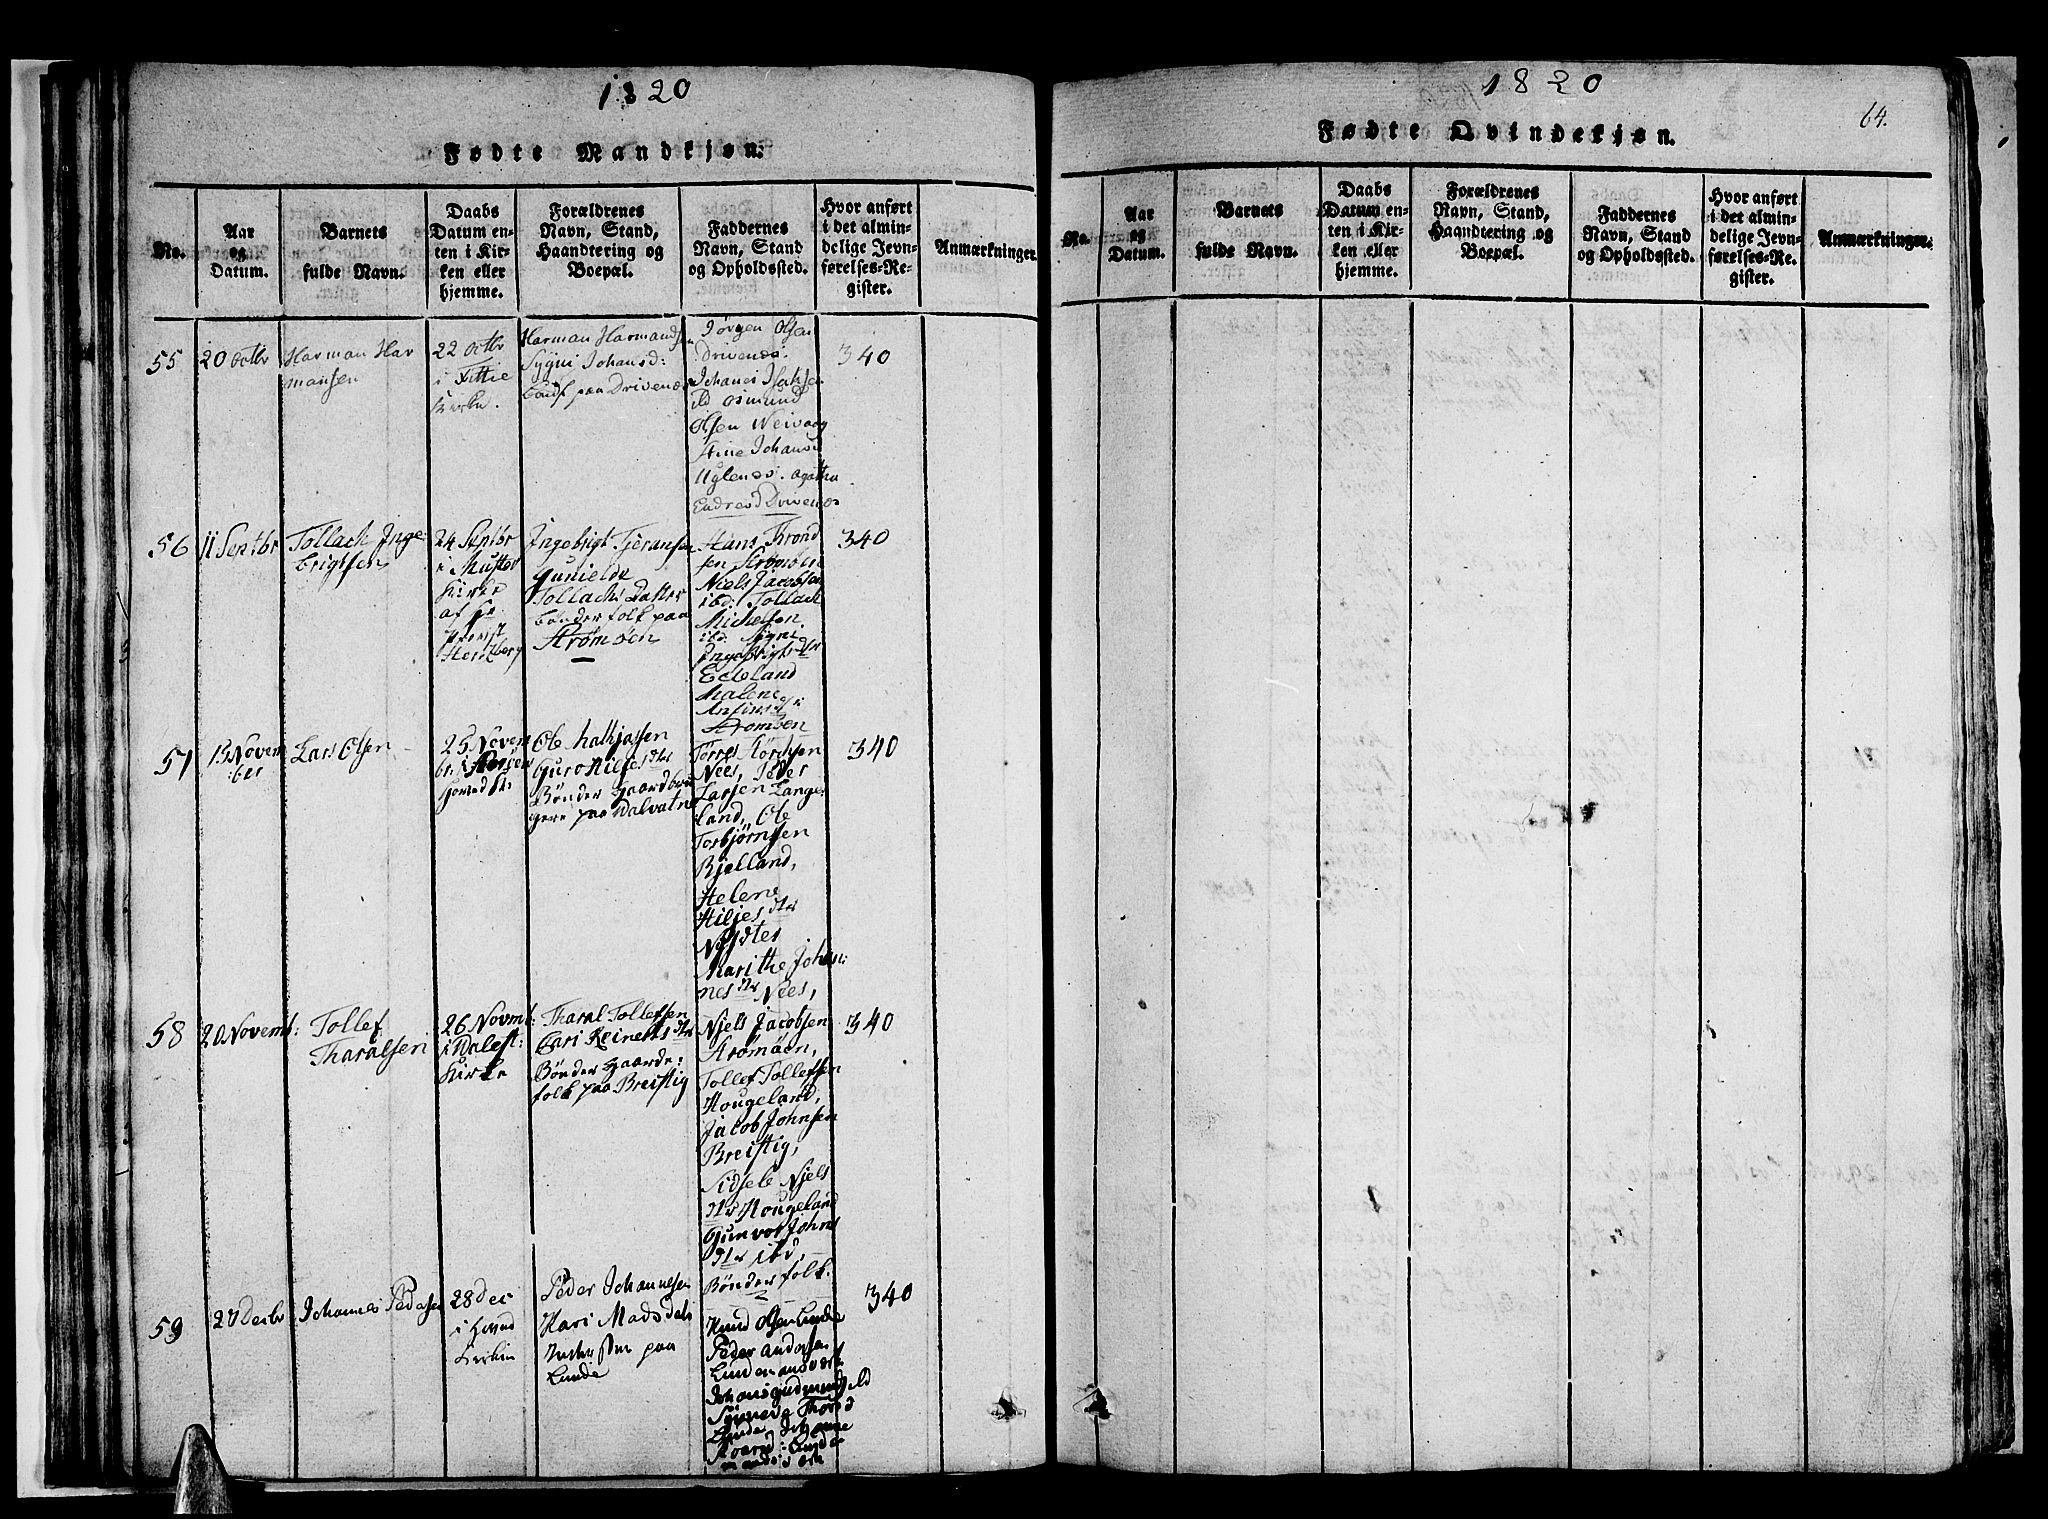 1820
Fødte Mandkjøn.
No.
Aar
og
Datum.
Barnets
fulde Navn.
Daabs
Datum en-
ten i Kir-
ken eller
hjemme.
Forældrenes
Navn, Stand,
Haandtering og
Boepæl.
Faddernes
Navn, Stand
og Opholdssted.
Hvor anført
i det almin-
delige Jevn-
førelses-Re-
gister.
Anmærkninger.
55
20 octbr
Harman Har
mansen
22 octbr
i Fittie
Kirke.
Harman Harmansen
Sygni Johansd:
bondf paa Drivenæs
Jörgen Olsen
Drivenæs.
Johanes Isaksen
ild Osmund
Olsen Weivaag
Stine Johansd
Uglenæs. Agatha
Endresd Drivenæs
340
56
11 Sentbr
Tollach Inge
brigtsen
24 Sentbr
i
Kirke
af Hr
Provst
Hertzberg
Ingebrigt Tjeransen
Gunielde
Tollachs Datter
bönder folk paa
Strömöen
Hans Trond
sen Strömöen
Niels Jacobsen
ibd: Tollach
Michelsen
ibd. Signe
Ingebrigts dtr
Eckeland
Malene
Anfinsdtr
Strömöen
340
57
15 Novem
ber
Lars Olsen
25 Novem
br. i
hoved K:
Ole Mathjassen
Guro Nilses dtr
Bönder gaardbru
gere paa Dalvatne
Törres
Nees, Peder
Larsen Lange
land, Ole
Torbjörnsen
Bjelland,
Helene
Hiljes dtr
Marithe Johan:
nes dtr Nees,
340
58
20 Novemb:
Tollef
Tharalsen
26 Novmb:
i Walest:
Kirke
Tharal Tollefsen
Cari Reinerts dtr
Bönder gaarde:
folk paa Breistig
Niels Jacobsen
Strömöen,
Tollef Tollefsen
Hougeland,
Jacob Johnsen
Breistig,
Sidsele Njels
dtr Hougeland
Gunvor Johns
dtr ibd,
Bönder folk.
340
59
27 Decbr
Johannes Pedersen
28 Dec
i hoved
Kirken
Peder Johannesen
Kari Mads dat
paa
Lunde
Knud Olsen Lunde
Peder Andersen
Lunde
ild
Lunde
340
1820
64.
Fødte Qvindekjøn.
No.
Aar
og
Datum.
Barnets
fulde Navn.
Daabs
Datum en-
ten i Kir-
ken eller
hjemme.
Forældrenes
Navn, Stand,
Haandtering og
Boepæl.
Faddernes
Navn, Stand
og Opholdssted.
Hvor anført
i det almin-
delige Jevn-
førelses-Re-
gister.
Anmærkninger.